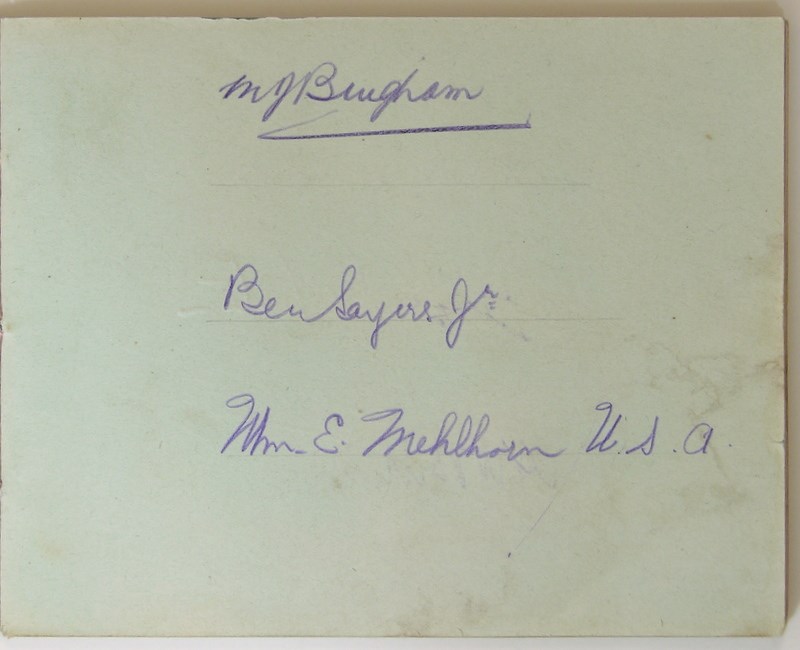 M J Bingham
Ben Sayers Jr.
Wm. E. Mehlhorn U.S.A.